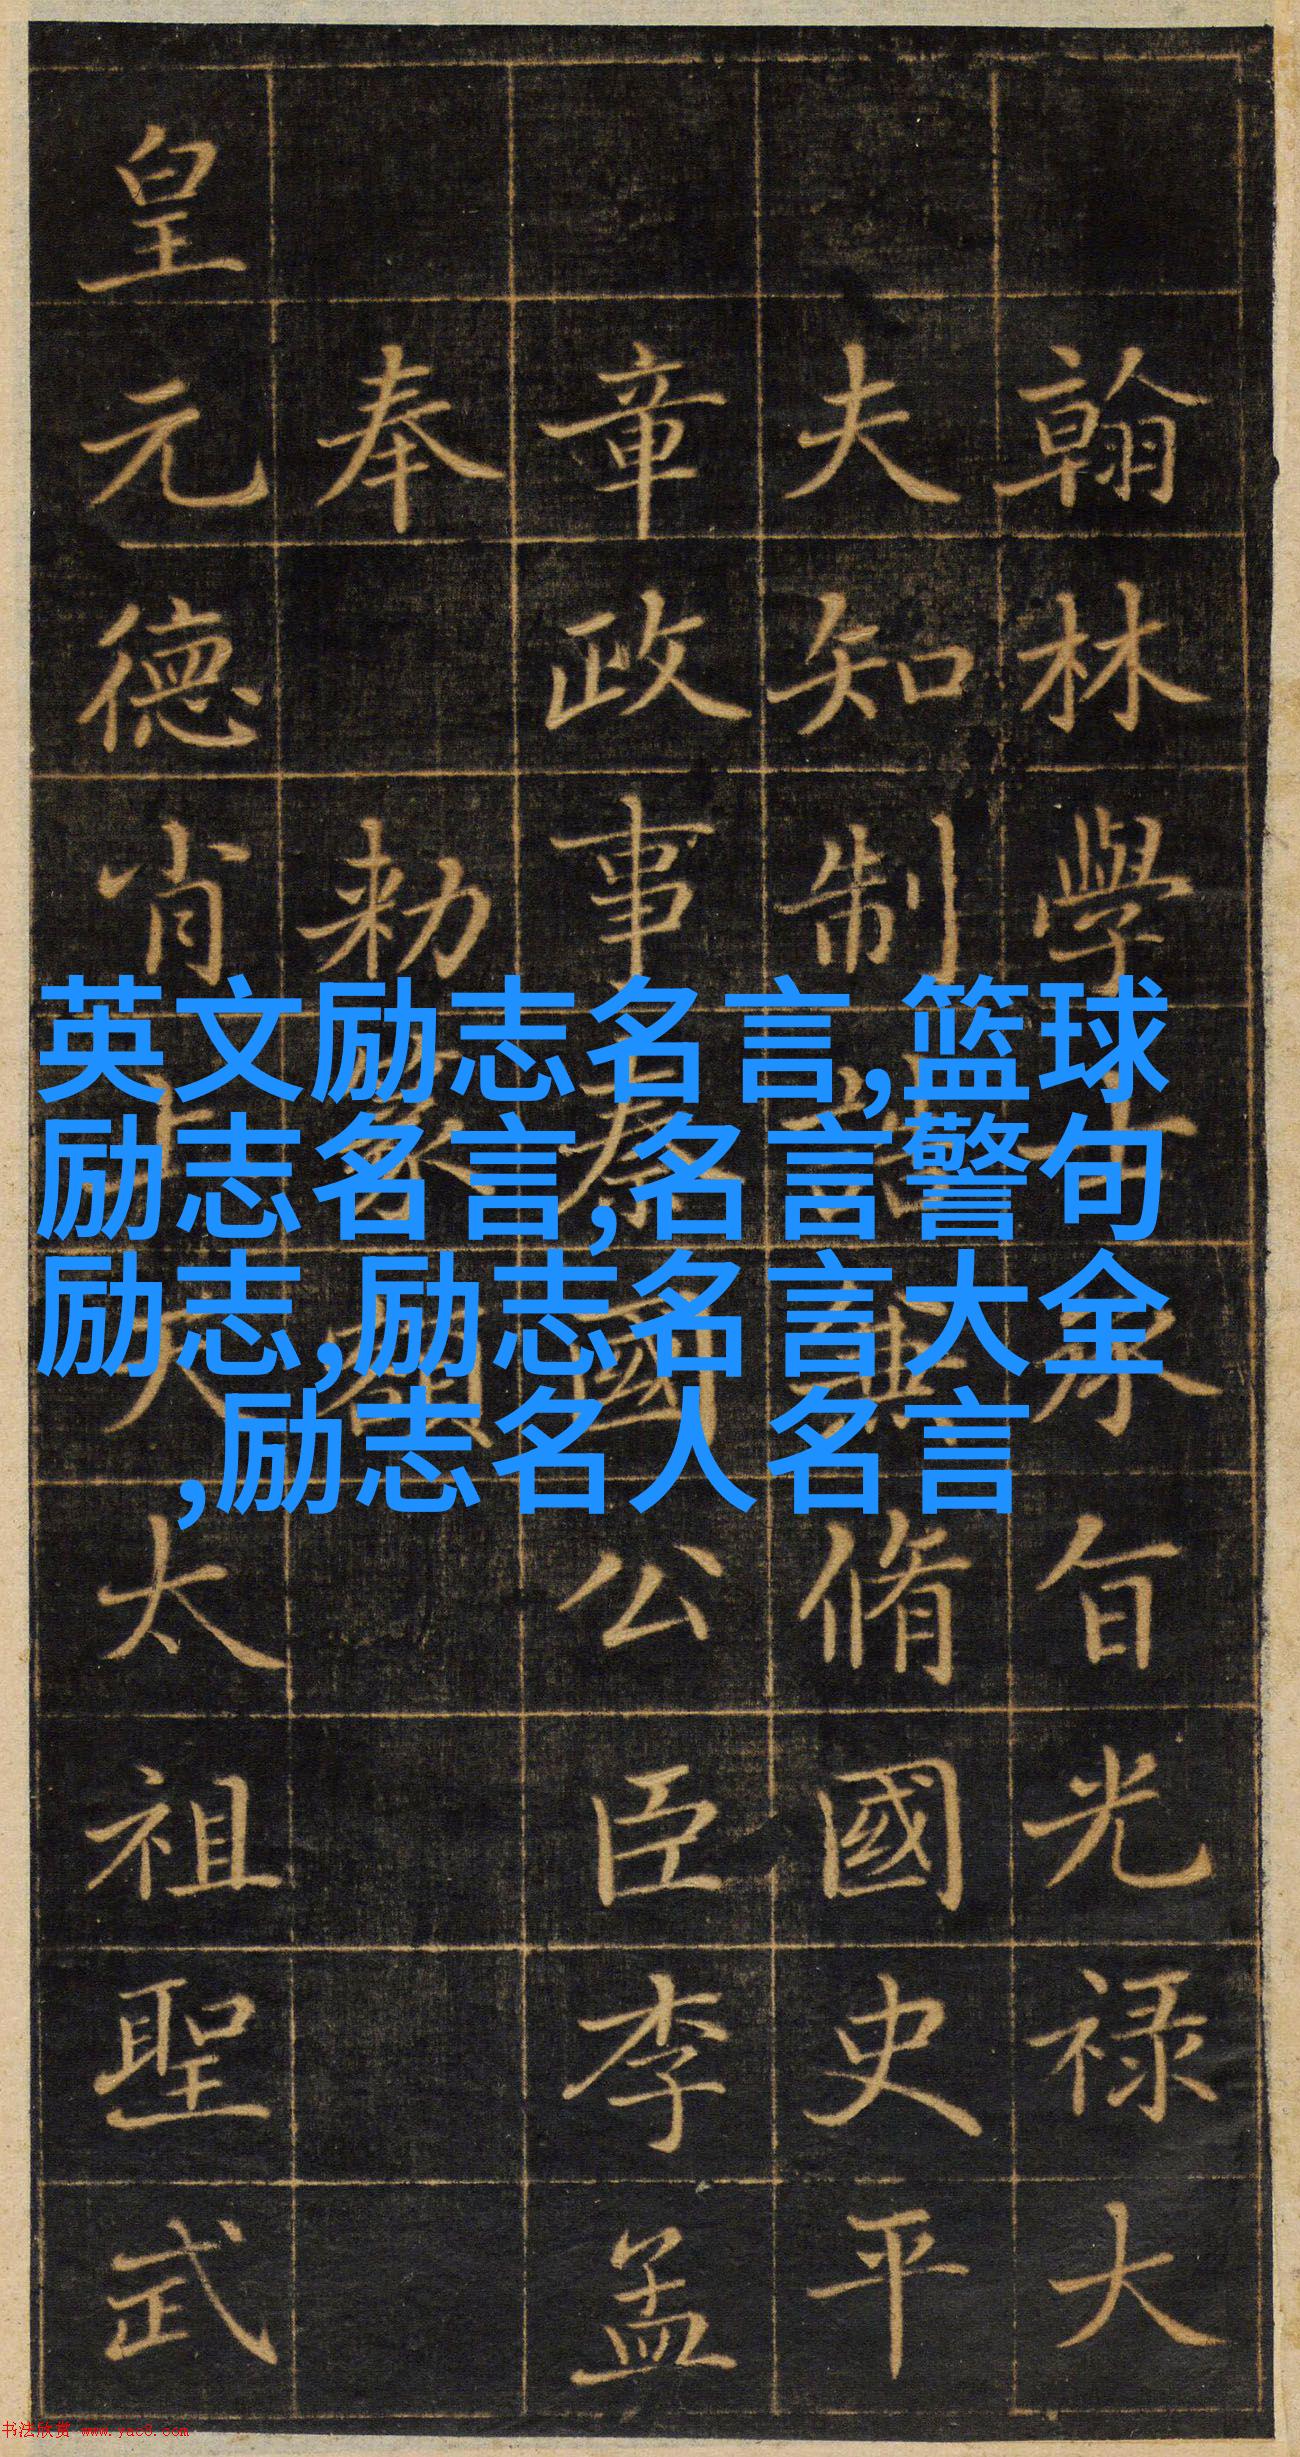 翰林學士承旨光禄大
夫知制誥兼脩國史平
章政事秦國公臣李孟
奉勅篆額
皇元德肖天太祖聖武
英文励志名言,篮球
励志名言,名言警句
励志,励志名言大全
,励志名人名言
书法欣赏 www.yac8.com